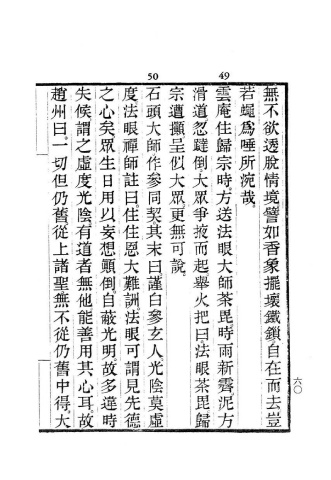 無不欲透脫情境譬如香象擺壞鐵鎖自在而去豈
若蠅爲唾所涴哉
49
雲庵住歸宗時方送法眼大師茶毘時雨新霽泥方
滑道忽躂倒大眾爭掖而起舉火把曰法眼茶毘歸
宗遭攧呈似大眾更無可說
50
石頭大師作參同契其末曰謹白參玄人光陰莫虛
度法眼禪師註曰住住恩大難詶法眼可謂見先德
之心矣眾生日用以妄想顚倒自蔽光明故多違時
失候謂之虛度光陰有道者無他能善用其心耳故
趙州曰一切但仍舊從上諸聖無不從仍舊中得大
六〇